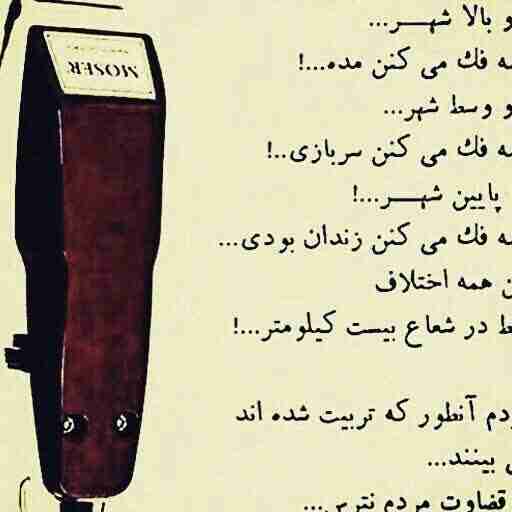 MOSER
و بالا شهــر...
ـه فك می کنن مده...!
و وسط شهر...
ـه فك می کنن سربازی..!
پایین شهــر...!
ـه فك می کنن زندان بودی...
ـن همه اختلاف
ـط در شعاع بیست کیلومتر...!
ـردم آنطور که تربیت شده اند
ـی بینند...
قضاوت مردم نترس...